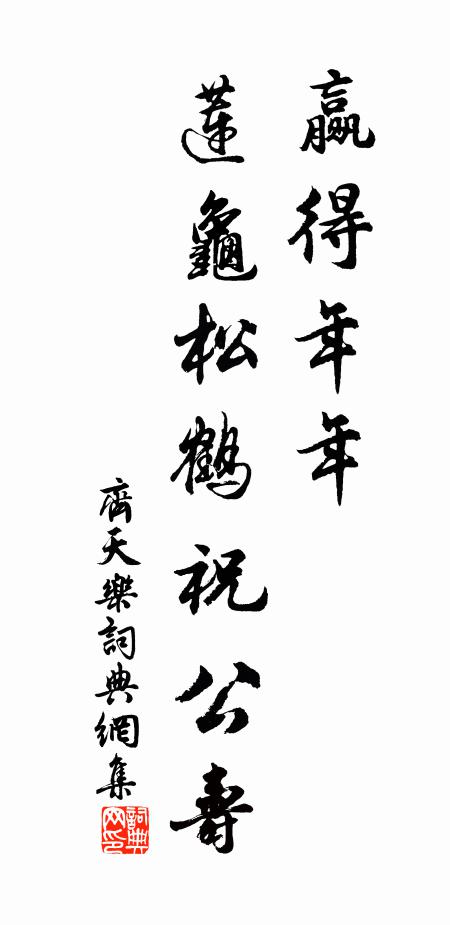 贏得年年
蓮龜松鶴祝公壽
齊天樂詞典網集
詞典网印